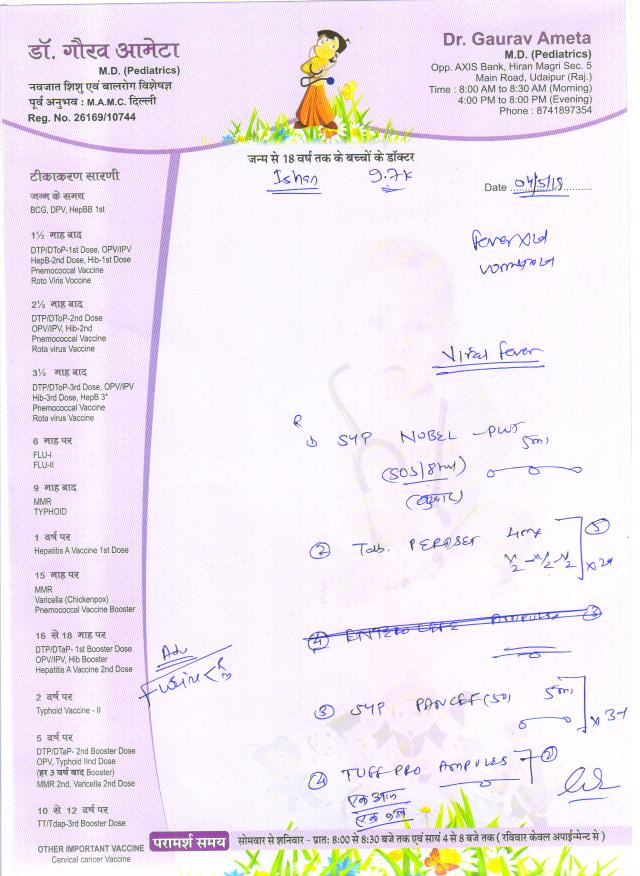 डॉ. गौरव आमेटा
M.D. (Pediatrics)
नवजात शिशु एवं बालरोग विशेषज्ञ
पूर्व अनुभव : M.A.M.C. दिल्ली
Reg. No. 26169/10744
Dr. Gaurav Ameta
M.D. (Pediatrics)
Opp. AXIS Bank, Hiran Magri Sec. 5
Main Road, Udaipur (Raj.)
Time : 8:00 AM to 8:30 AM (Morning)
4:00 PM to 8:00 PM (Evening)
Phone : 8741897354
जन्म से 18 वर्ष तक के बच्चों के डॉक्टर
Ishan 9.7k
Date
टीकाकरण सारणी
जन्म के समय
BCG, DPV, HepBB 1st
1½ माह बाद
DTP/DToP-1st Dose, OPV/IPV
HepB-2nd Dose, Hib-1st Dose
Pnemococcal Vaccine
Roto Viris Voccine
2½ माह बाद
DTP/DToP-2nd Dose
OPV/IPV, Hib-2nd
Pnemococcal Vaccine
Rota virus Vaccine
3½ माह बाद
DTP/DToP-3rd Dose, OPV/IPV
Hib-3rd Dose, HepB 3*
Pnemococcal Vaccine
Rota virus Vaccine
6 माह पर
FLU-I
FLU-II
9 माह बाद
MMR
TYPHOID
1 वर्ष पर
Hepatitis A Vaccine 1st Dose
15 माह पर
MMR
Varicella (Chickenpox)
Pnemococcal Vaccine Booster
16 से 18 माह पर
DTP/DTaP- 1st Booster Dose
OPV/IPV, Hib Booster
Hepatitis A Vaccine 2nd Dose
2 वर्ष पर
Typhoid Vaccine - II
5 वर्ष पर
DTP/DTaP- 2nd Booster Dose
OPV, Typhoid IInd Dose
(हर 3 वर्ष बाद Booster)
MMR 2nd, Varicella 2nd Dose
10 से 12 वर्ष पर
TT/Tdap-3rd Booster Dose
OTHER IMPORTANT VACCINE
Cervical cancer Vaccine
Fever
Viral fever
R
1 SYP NOBEL - PLUS 5ml
(SOS/8hr)
(बुखार)
2 Tab. PERASET 4mg 5
½ - ½ - ½
Adv
3 SYP PANCEF (50) 5ml
4 TUFF PRO AMPULES
एक आज
एक कल
परामर्श समय सोमवार से शनिवार - प्रात: 8:00 से 8:30 बजे तक एवं सायं 4 से 8 बजे तक ( रविवार केवल अपाईन्मेन्ट से )